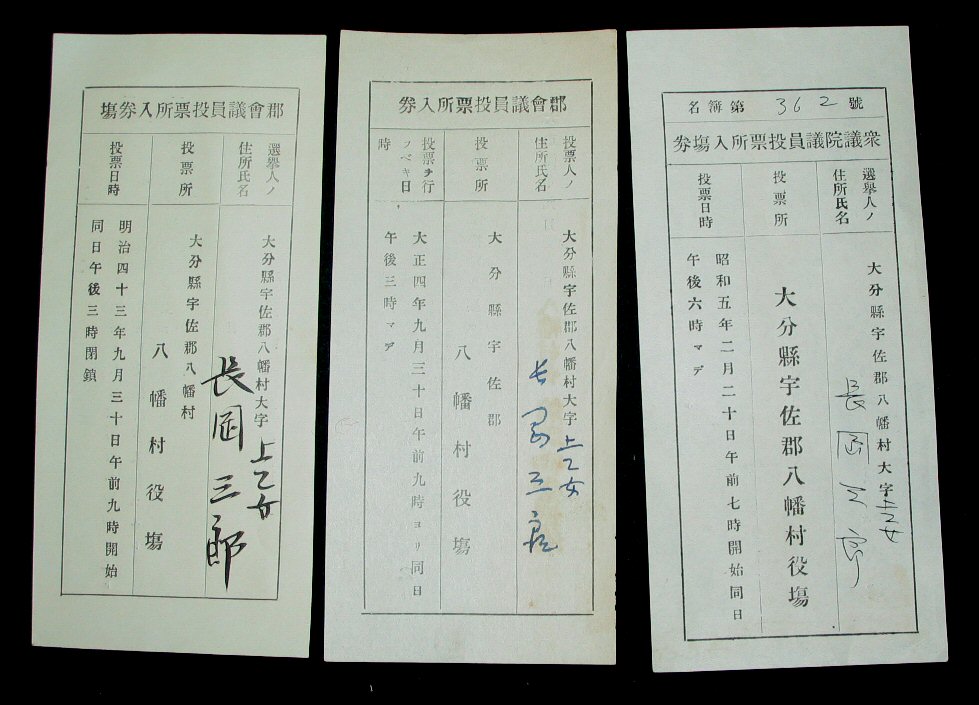 郡會議員投票所入券塲
選擧人ノ
住所氏名
大分縣宇佐郡八幡村大字上乙女
長岡三郎
投票所
大分縣宇佐郡八幡村
八幡村役塲
投票日時
明治四十三年九月三十日午前九時開始
同日午後三時閉鎖
郡會議員投票所入券
投票人ノ
住所氏名
大分縣宇佐郡八幡村大字上乙女
長岡三郎
投票所
大分縣宇佐郡
八幡村役塲
投票チ行
フベキ日
時
大正四年九月三十日午前九時ヨリ同日
午後三時マデ
名簿第362號
衆議院議員投票所入塲券
選擧人ノ
住所氏名
大分縣宇佐郡八幡村大字上乙女
長岡三郎
投票所
大分縣宇佐郡八幡村役塲
投票日時
昭和五年二月二十日午前七時開始同日
午後六時マデ